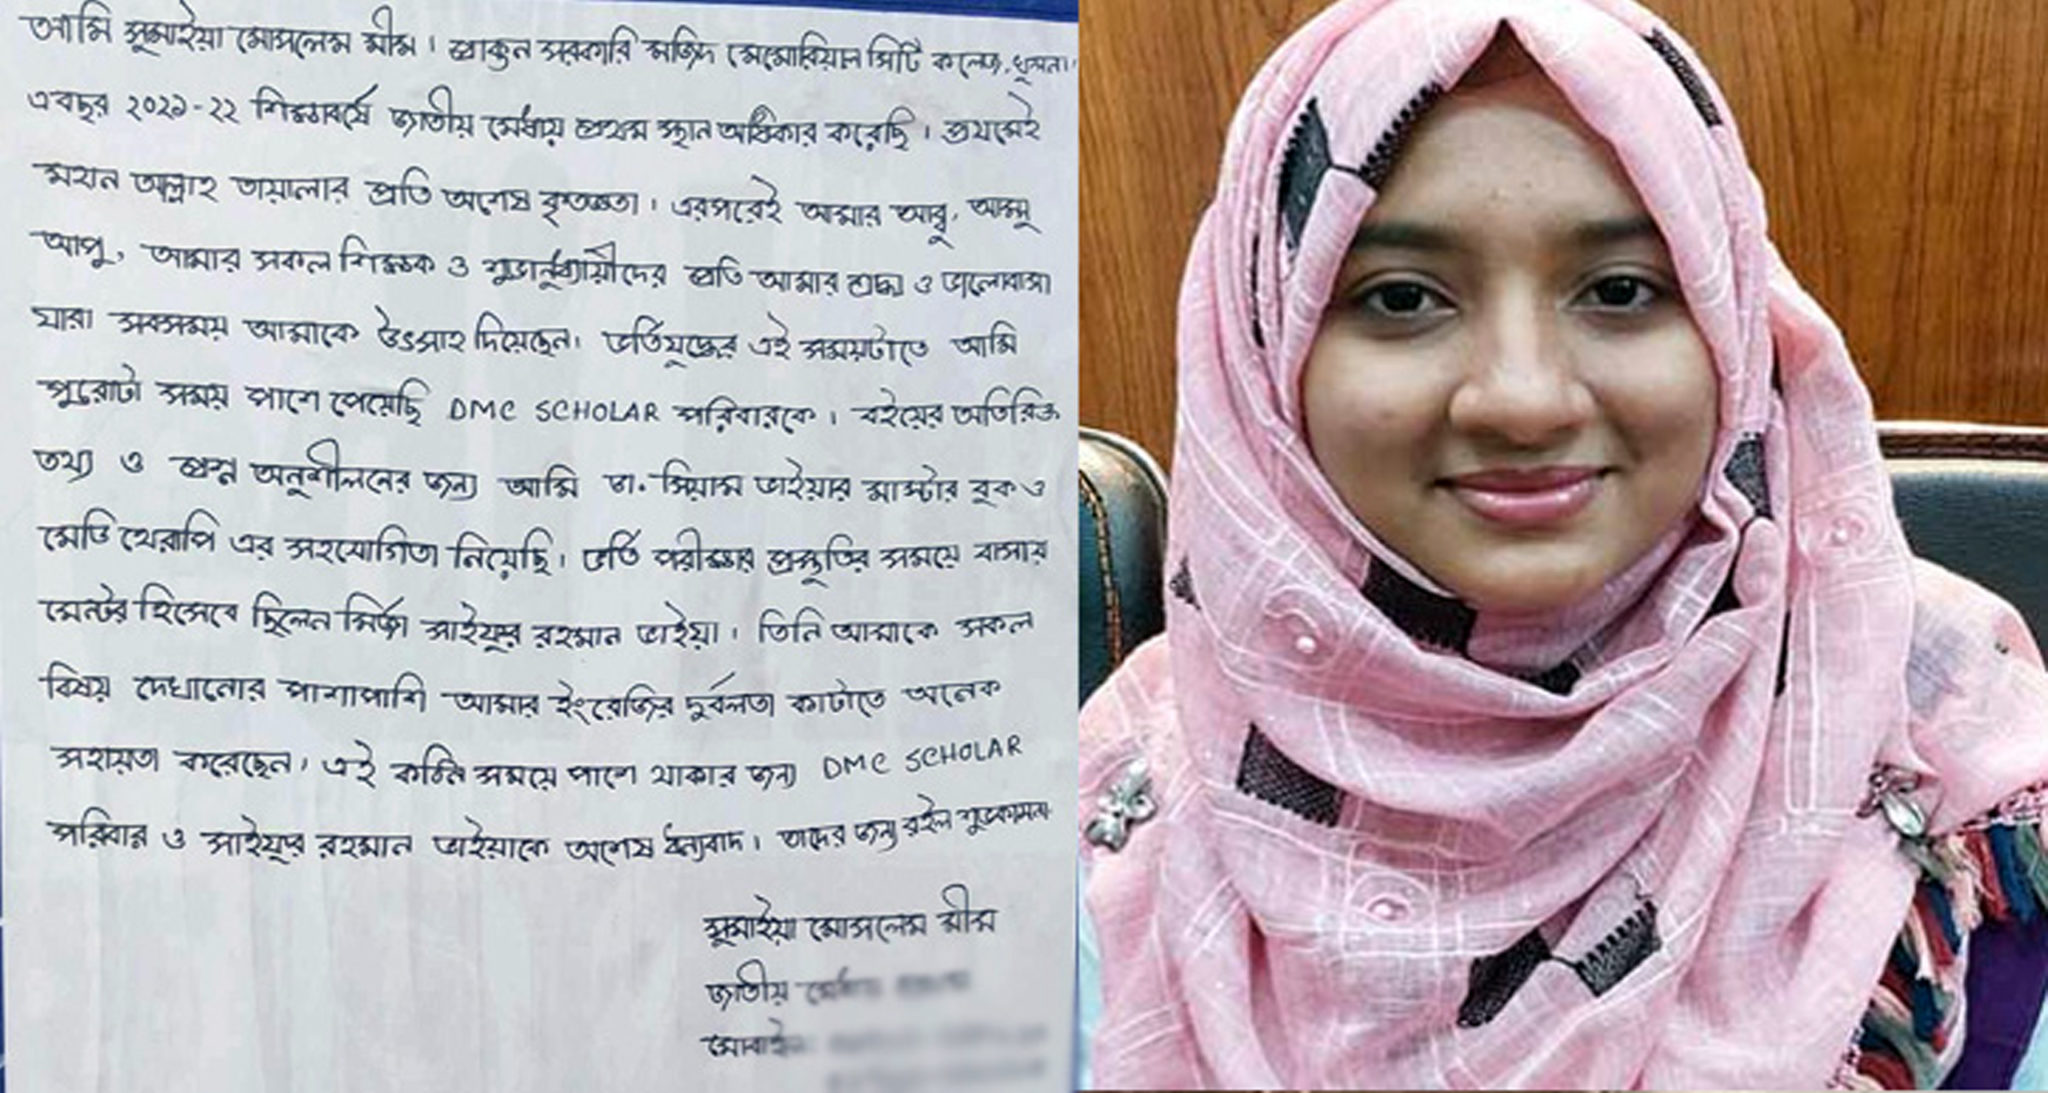 আমি সুমাইয়া মোসলেম মীম। প্রাক্তন সরকারি মজিদ মেমোরিয়াল সিটি কলেজ, খুলনা।
এবছর ২০২১-২২ শিক্ষাবর্ষে জাতীয় মেধায় প্রথম স্থান অধিকার করেছি। প্রথমেই
মহান আল্লাহ তায়ালার প্রতি অশেষ কৃতজ্ঞতা। এরপরেই আমার আব্বু, আম্মু
আপু, আমার সকল শিক্ষক ও শুভানুধ্যায়ীদের প্রতি আমার শ্রদ্ধা ও ভালোবাসা
যারা সবসময় আমাকে উৎসাহ দিয়েছেন। ভর্তিযুদ্ধের এই সময়টাতে আমি
পুরোটা সময় পাশে পেয়েছি DMC SCHOLAR পরিবারকে। বইয়ের অতিরিক্ত
তথ্য ও প্রশ্ন অনুশীলনের জন্য আমি ডা. সিয়াম ভাইয়ার মাস্টার বুক ও
মেডি থেরাপি এর সহযোগিতা নিয়েছি। ভর্তি পরীক্ষার প্রস্তুতির সময়ে বাসায়
মেন্টর হিসেবে ছিলেন মির্জা সাইফুর রহমান ভাইয়া। তিনি আমাকে সকল
বিষয় দেখানোর পাশাপাশি আমার ইংরেজির দুর্বলতা কাটাতে অনেক
সহায়তা করেছেন। এই কঠিন সময়ে পাশে থাকার জন্য DMC SCHOLAR
পরিবার ও সাইফুর রহমান ভাইয়াকে অশেষ ধন্যবাদ। তাদের জন্য রইল শুভকামনা
সুমাইয়া মোসলেম মীম
জাতীয়
মোবাইল